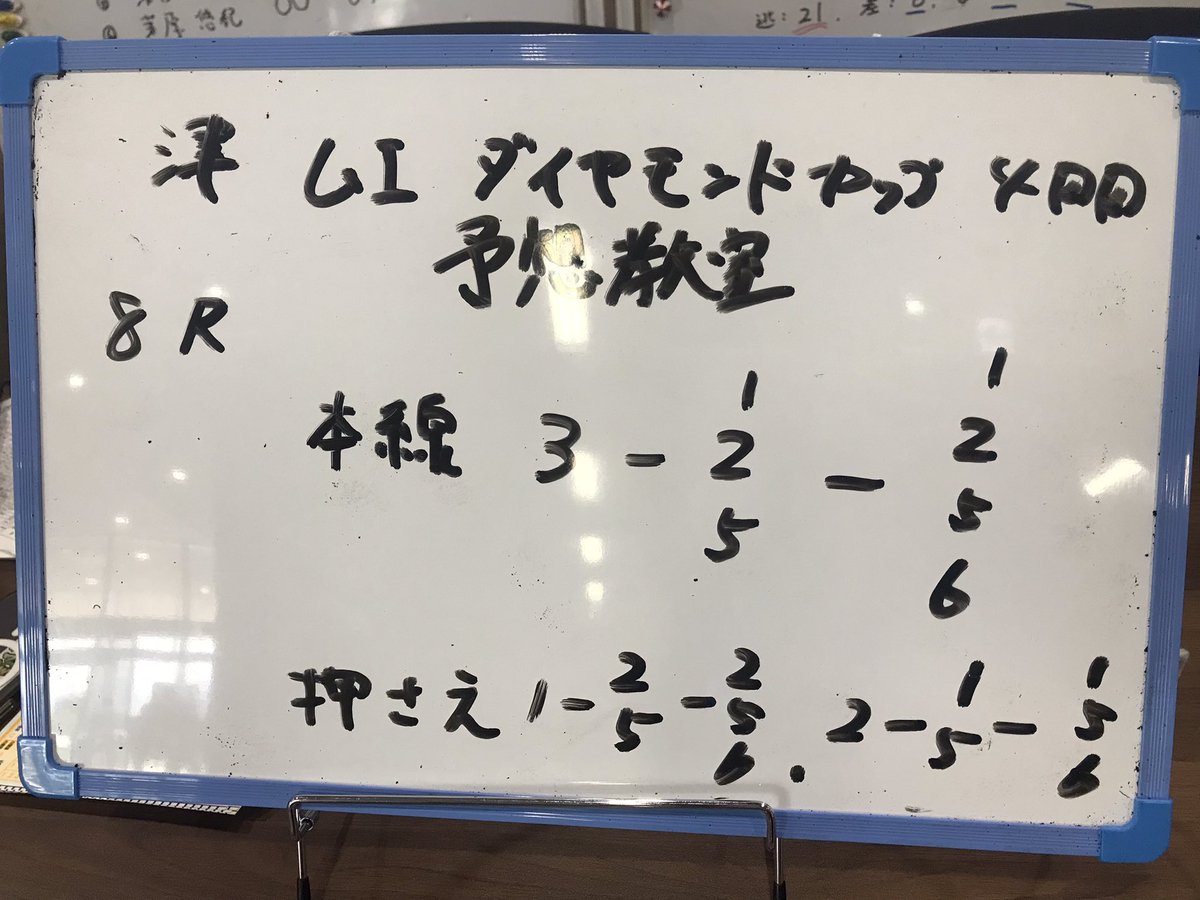 芦屋 悠紀
逃:21. 差:
津 GI ダイヤモンドカップ 4日日
予想教室
8R
本線 3 - 1 2 5 - 1 2 5 6
押さえ 1 - 2 5 - 2 5 6 . 2 - 1 5 - 1 5 6